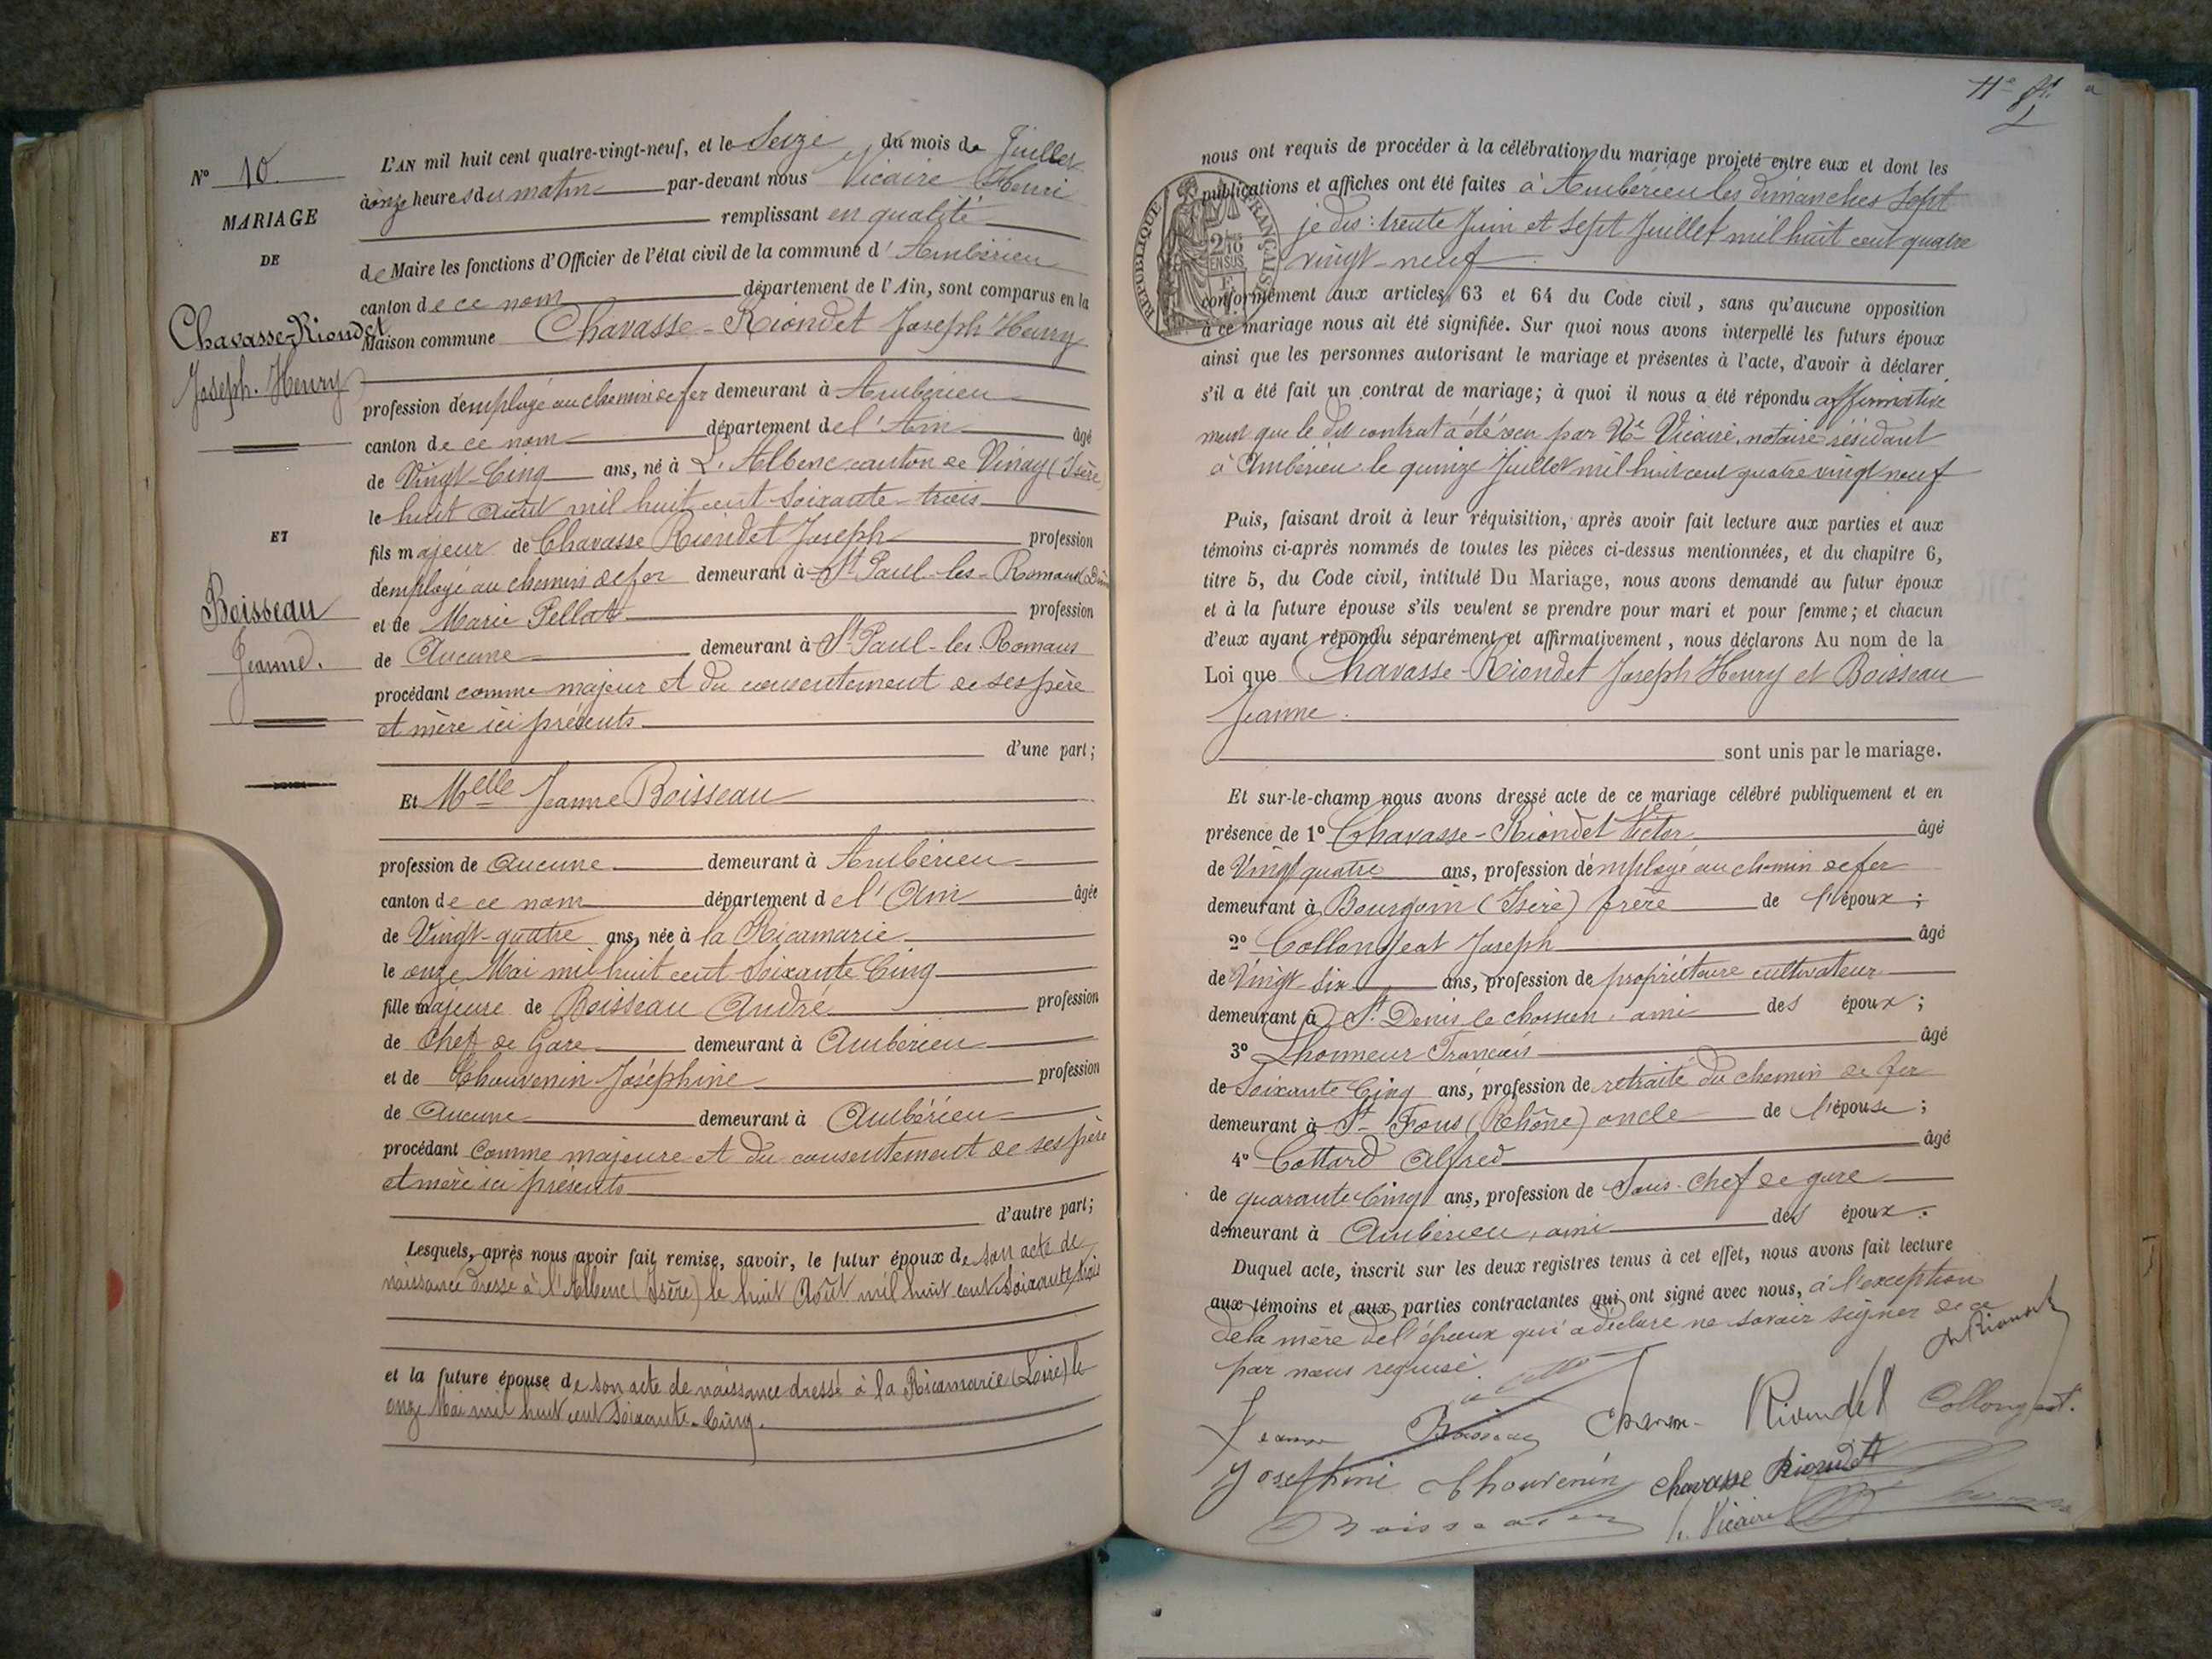 N° 10
MARIAGE
DE
Chavasse-Riondet
Joseph. Henry
ET
Boisseau
Jeanne.
L'AN mil huit cent quatre-vingt-neuf, et le Seize du mois de Juillet
à onze heures du matin par-devant nous Vicaire Henri
remplissant en qualité
de Maire les fonctions d'Officier de l'état civil de la commune d'Ambérieu
canton de ce nom département de l'Ain, sont comparus en la
Maison commune Chavasse-Riondet Joseph Henry
profession d'employé au chemin de fer demeurant à Ambérieu
canton de ce nom département de l'Ain âgé
de Vingt-Cinq ans, né à L'Albenc canton de Vinay (Isère)
le huit Août mil huit cent soixante-trois
fils majeur de Chavasse Riondet Joseph profession
d'employé au chemin de fer demeurant à St Paul-les-Romans (Drôme
et de Marie Pellat profession
de Aucune demeurant à St Paul-les-Romans
procédant comme majeur et du consentement de ses père
et mère ici présents
d'une part;
Et Melle Jeanne Boisseau
profession de aucune demeurant à Ambérieu
canton de ce nom département de l'Ain âgée
de Vingt-quatre ans, née à la Ricamarie
le onze Mai mil huit cent Soixante Cinq
fille majeure de Boisseau André profession
de Chef de Gare demeurant à Ambérieu
et de Thouvenin Joséphine profession
de Aucune demeurant à Ambérieu
procédant comme majeure et du consentement de ses père
et mère ici présents
d'autre part;
Lesquels, après nous avoir fait remise, savoir, le futur époux de son acte de
naissance dressé à l'Albenc (Isère) le huit Août mil huit cent Soixante trois
et la future épouse de son acte de naissance dressé à la Ricamarie (Loire) le
onze Mai mil huit cent Soixante-Cinq.
nous ont requis de procéder à la célébration du mariage projeté entre eux et dont les
publications et affiches ont été faites à Ambérieu les dimanches Sept
je dis: trente Juin et Sept Juillet mil huit cent quatre
vingt-neuf
RÉPUBLIQUE FRANÇAISE
conformément aux articles 63 et 64 du Code civil, sans qu'aucune opposition
à ce mariage nous ait été signifiée. Sur quoi nous avons interpellé les futurs époux
ainsi que les personnes autorisant le mariage et présentes à l'acte, d'avoir à déclarer
s'il a été fait un contrat de mariage; à quoi il nous a été répondu affirmative
ment que le dit contrat a été reçu par Me Vicaire, notaire résidant
à Ambérieu le quinze Juillet mil huit cent quatre vingt neuf
Puis, faisant droit à leur réquisition, après avoir fait lecture aux parties et aux
témoins ci-après nommés de toutes les pièces ci-dessus mentionnées, et du chapitre 6,
titre 5, du Code civil, intitulé Du Mariage, nous avons demandé au futur époux
et à la future épouse s'ils veulent se prendre pour mari et pour femme; et chacun
d'eux ayant répondu séparément et affirmativement, nous déclarons Au nom de la
Loi que Chavasse-Riondet Joseph Henry et Boisseau
Jeanne.
sont unis par le mariage.
Et sur-le-champ nous avons dressé acte de ce mariage célébré publiquement et en
présence de 1° Chavasse-Riondet Victor âgé
de Vingt quatre ans, profession d'employé au chemin de fer
demeurant à Bourgoin (Isère) frère de l'époux;
2° Collongeat Joseph âgé
de Vingt-six ans, profession de propriétaire cultivateur
demeurant à St. Denis le chosson. ami des époux;
3° Lhonneur François âgé
de Soixante Cinq ans, profession de retraité du chemin de fer
demeurant à St-Fons (Rhône) oncle de l'épouse;
4° Cottard Alfred âgé
de quarante Cinq ans, profession de Sous-Chef de gare
demeurant à Ambérieu, ami des époux.
Duquel acte, inscrit sur les deux registres tenus à cet effet, nous avons fait lecture
aux témoins et aux parties contractantes qui ont signé avec nous, à l'exception
de la mère de l'époux qui a déclaré ne savoir signer de ce
par nous requise.
Jeanne Boisseau Riondet Collongeat.
Joséphine Thouvenin Chavasse Riondet
Boisseau h. Vicaire